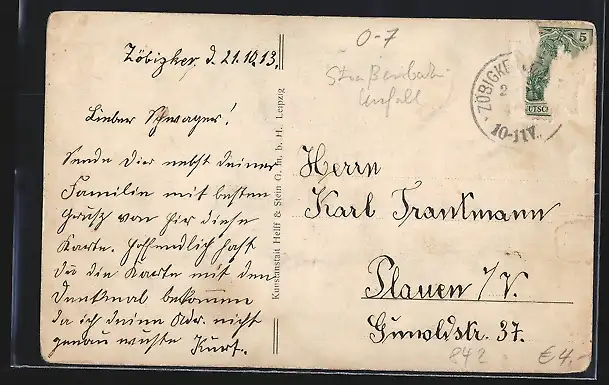 Zöbigker, d. 21.10.13.
Lieber Schwager!
Sende Dir nebst deiner
Familie mit besten
Gruß von hir diese
Karte. Hoffendlich hast
du die Karte mit dem
Denkmal bekommen
da ich deine Adr. nicht
genau wußte Kurt.
Kunstanstalt Helff & Stein G. m. b. H. Leipzig
0-7
Straßenbahn
Unfall
ZÖBIGKE
10-11V.
5
UTSC
Herrn
Karl Trautmann
Plauen i/V.
str. 37.
842
€ 4.-